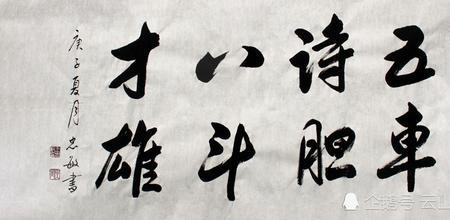 五車
诗胆
八斗
才雄
庚子夏月忠敏書
企鹅号 云山